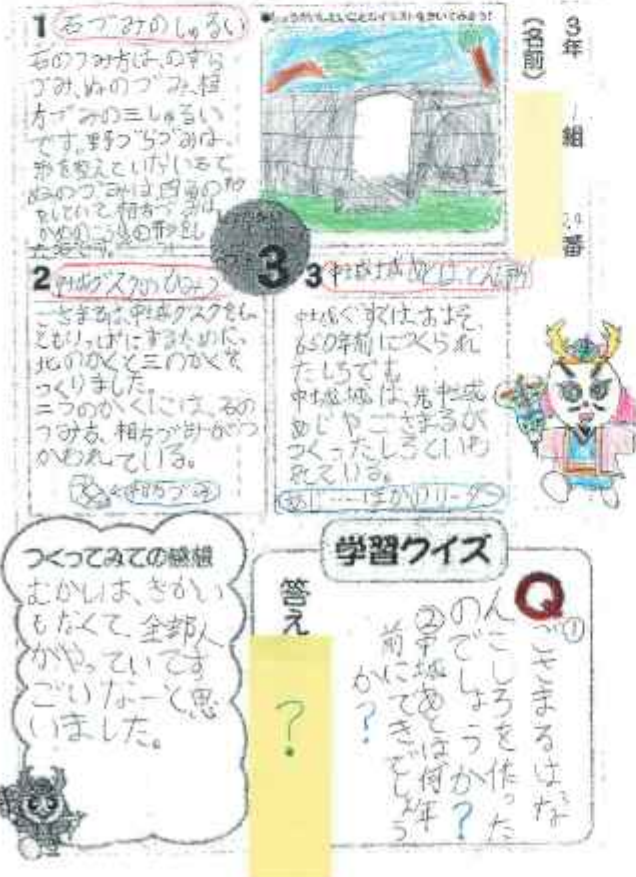 3年
組
番
(名前)
1 石づみのしゅるい
石のつみ方は、のずら
づみ、ぬのづみ、相
方づみの三しゅるい
です。野づらづみは、
形を整えていない石で
ぬのづみは四角の形
をしていて、相方づみは
かめのこうらの形をし
3
2 中城グスクのひみつ
ごさまるは、中城グスクをも
っとりっぱにするために、
北のかくと三のかくを
つくりました。
二つのかくには、石の
つみ方、相方づみがつ
かわれている。
3 中城城あとは、どんな
中城ぐすくは、およそ
650年前につくられ
たしろです。
中城城は、先中城
あじやごさまるが
つくったしろといわ
れている。
あじ……ほかのリーダー
つくってみての感想
むかしは、きかい
もなくて、全部人
がやっていてす
ごいなーと思
いました。
学習クイズ
Q
①ごさまるはな
んこしろを作った
のでしょうか?
②中城あとは何年
前にできたでしょう
か?
答え
?